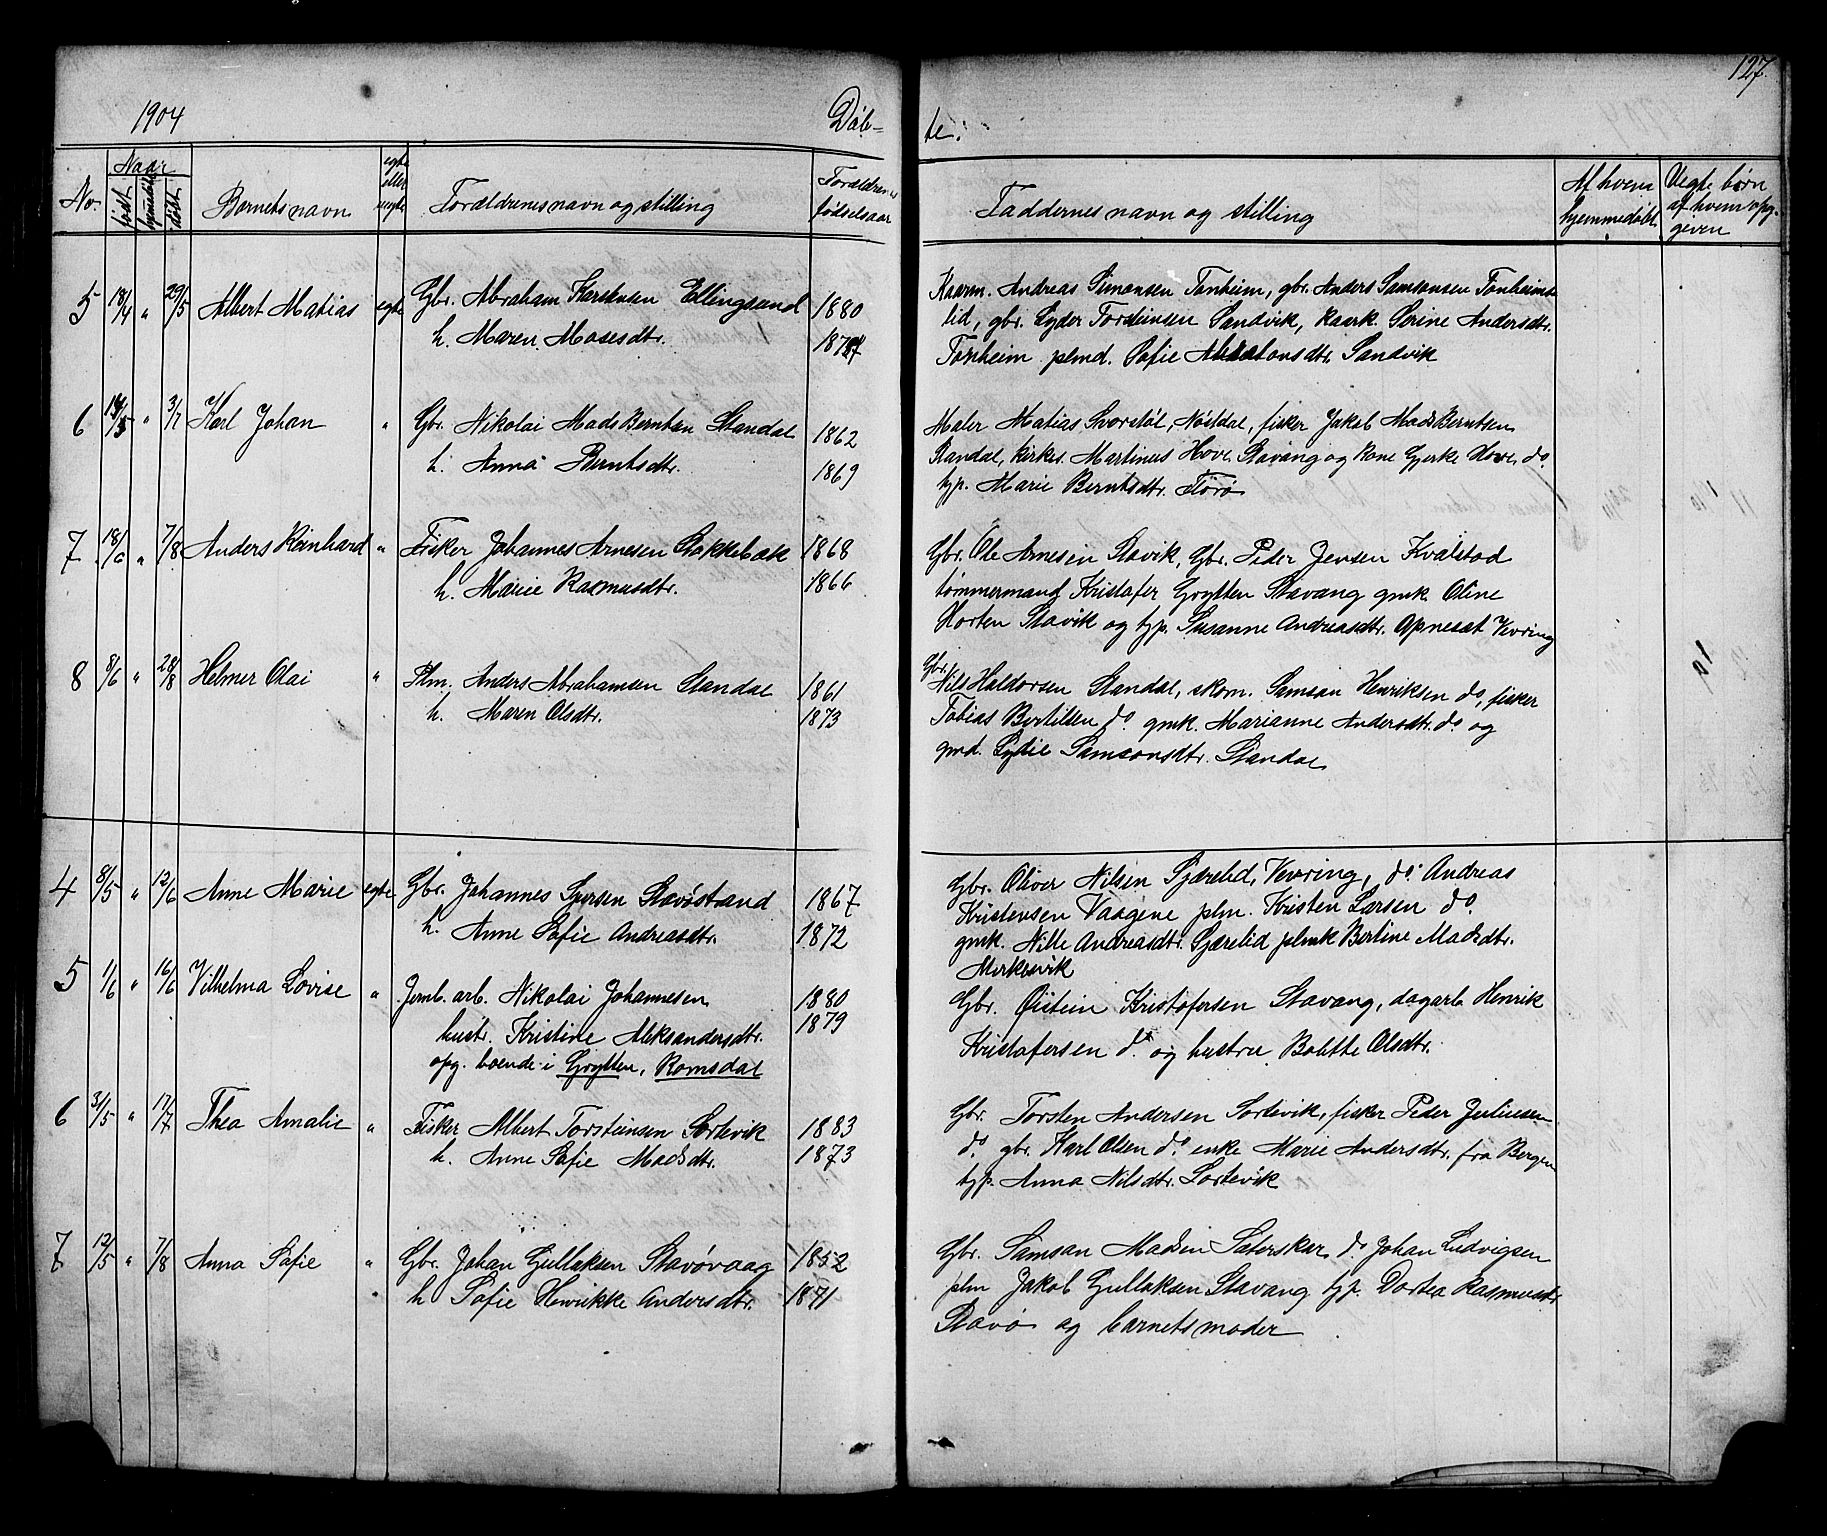 127.
1904
Døb-
te.
No.
Naar
født
hjemmedøbt
døbt
Barnets navn
egte eller uegte
Forældrenes navn og stilling
Forældrenes fødselsaar
Faddernes navn og stilling
Af hvem hjemmedøbt
Uegte børn af hvem opg-geven
5 18/4 " 29/5 Albert Matias egte Gbr. Abraham Karstensen Ellingsund 1880
h. Maren Mosesdtr.
Kaarm. Andreas Simonsen Tonheim, gbr. Anders Samsonsen Tonheims-
lid, gbr. Lyder Torsteinsen Sandvik, kaark. Serine Andersdtr.
Tonheim plmd. Sofie Absalonsdtr. Sandvik
6 " 3/7 Karl Johan " Gbr. Nikolai Mads Berntsen Standal 1862
h. Anna Berntsdtr. 1869
Maler Matias Svorstøl, Nøstdal, fisker Jakob Mads Berntsen
Standal, kirkes. Martinus Hove Stavang og kone Gjerke Hove do.
typ. Marie Berntsdtr. Florø
7 18/6 " 7/8 Anders Reinhard " Fisker Johannes Arnesen Stokkebæk 1868
h. Marie Rasmusdtr. 1866
Gbr. Ole Arnesen Stavik, Gbr. Peder Jensen Kvalstad
tømmermand Kristofer Grytten Stavang gmk. Oline
Horten Stavik og typ. Susanne Andreasdtr. Apneset Vevring
8 8/6 " 28/8 Helmer Olai " Plm. Anders Abrahamsen Standal 1861
h. Maren Olsdtr. 1873
Gbr. Nils Haldorsen Standal, skom. Samson Henriksen do, fisker
Tobias Bertilsen do. gmk. Marianne Andersdtr. do. og
gmd. Lydie Samsonsdtr. Standal
4 8/5 " 12/6 Anne Marie egte Gbr. Johannes Sjursen Stavøstrand 1867
h. Anne Sofie Andreasdtr. 1872
Gbr. Oliver Nilsen Sjærelid, Vevring, do. Andreas
Kristensen Vaagene plm. Kristen Larsen do.
gmk. Nille Andreasdtr. Sjærelid plmk Bertine Madsdtr.
Myrkesvik
5 1/6 " 16/6 Vilhelma Lovise " Jernb. arb. Nikolai Johannesen 1880
hustr. Kristine Aleksandersdtr. 1879
opg. boende i Grytten, Romsdal
Gbr. Øistein Kristofersen Stavang, dagarb. Henrik
Kristofersen do. og hustru Bolette Olsdtr.
6 31/5 " 17/7 Thea Amalie " Fisker Albert Torsteinsen Sortevik 1883
h. Anne Sofie Madsdtr. 1873
Gbr. Torsten Andersen Sortevik, fisker Peder Juliusen
do. gbr. Karl Olsen do. enke Marie Andersdtr. fra Bergen
typ. Anna Nilsdtr. Sortevik
7 12/5 " 7/8 Anna Sofie " Gbr. Johan Gullaksen Stavøvaag 1852
h Sofie Henrikke Andersdtr. " 1871
Gbr. Samson Madsen Sæterskar, do. Johan Ludvigsen
plm Jakob Gullaksen Stavang, typ. Dortea Rasmusdtr
Stavø og barnets moder